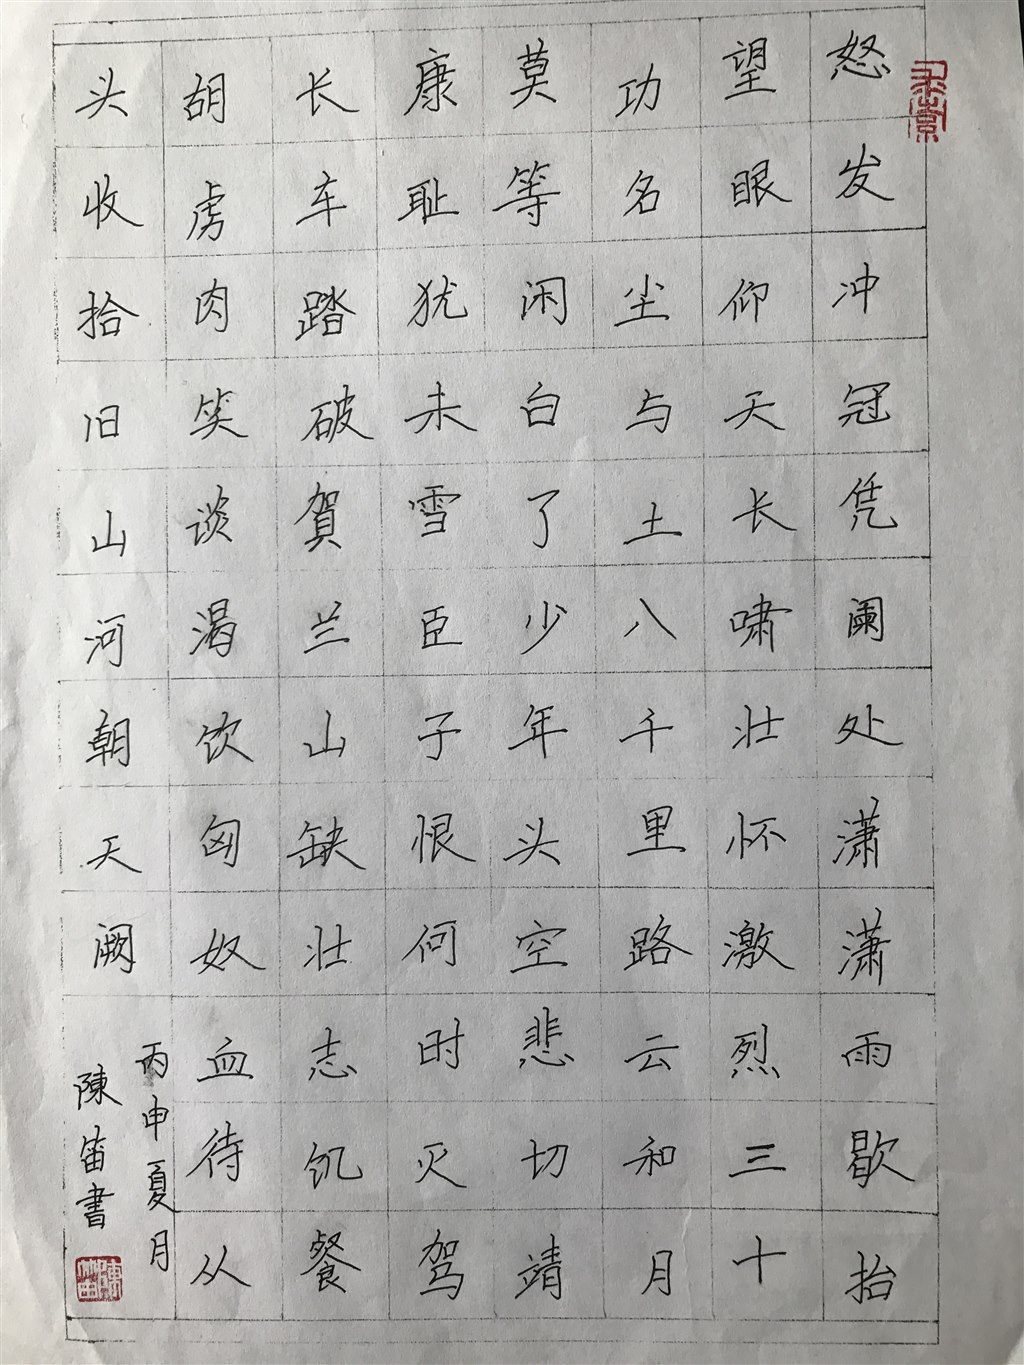 怒发冲冠凭阑处潇潇雨歇抬
望眼仰天长啸壮怀激烈三十
功名尘与土八千里路云和月
莫等闲白了少年头空悲切靖
康耻犹未雪臣子恨何时灭驾
长车踏破贺兰山缺壮志饥餐
胡虏肉笑谈渴饮匈奴血待从
头收拾旧山河朝天阙
丙申夏月
陳笛書